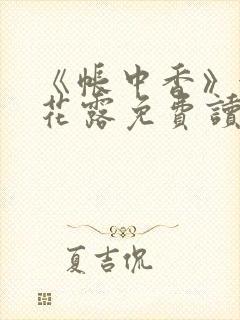 《帳中香》
花露免費讀
夏吉侃